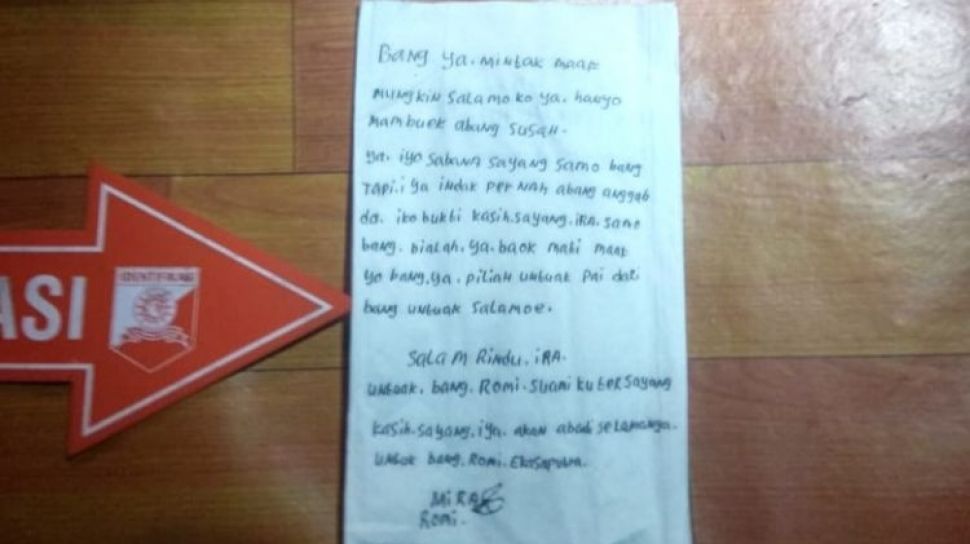 Bang ya. mintak maaf
mungkin salamo ko ya. hanyo
mambuek abang susah.
ya. iyo sabana sayang samo bang
Tapi. iya indak pernah abang anggab
do. iko bukti kasih. sayang. iRA. samo
bang. bialah. ya. baok mati maaf
yo bang. ya. piliah untuak pai dari
bang untuak salamoe.
Salam Rindu. iRA.
untuak. bang. Romi. Suami ku bersayang
kasih. sayang. iya. akan abadi selamanya.
untuk bang. Romi. Ekasaputra.
MiRA
Romi.
ASI
IDENTIFIKASI